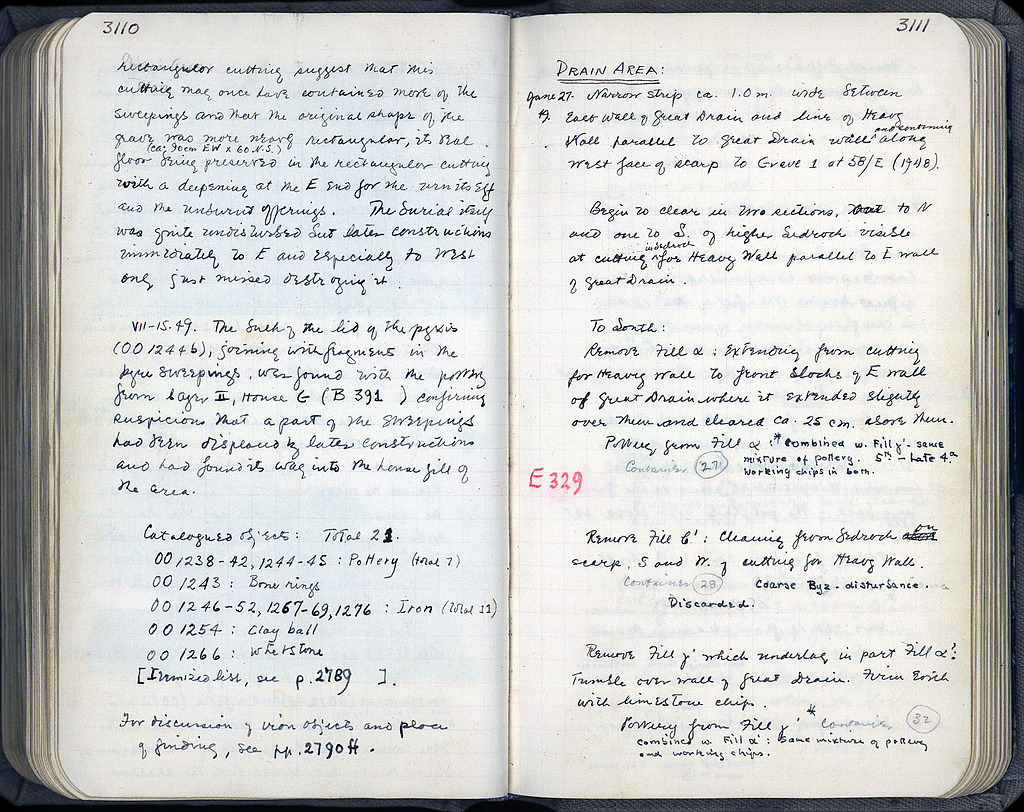 3110
rectangular cutting suggest that this
cutting may once have contained more of the
sweepings and that the original shape of the
grave was more nearly rectangular, its real
(ca. 90cm EW x 60 N.S.)
floor being preserved in the rectangular cutting
with a deepening at the E end for the urn itself
and the unburnt offerings. The burial itself
was quite undisturbed but later constructions
immediately to E and especially to West
only just missed destroying it.
VII-15.49. The bulk of the lid of the pyxis
(OO 1244b), joining with fragment in the
pyre sweepings, was found with the pottery
from Layer II, House G (B 391 ) confirming
suspicions that a part of the sweepings
had been displaced by later constructions
and had found its way into the house fill of
the area.
Catalogued objects: Total 21.
OO 1238-42, 1244-45 : Pottery (total 7)
OO 1243 : Bone rings
OO 1246-52, 1267-69, 1276 : Iron (Total 11)
OO 1254 : Clay ball
OO 1266 : Whetstone
[Itemized list, see p. 2789 ].
For discussion of iron objects and place
of finding, see pp. 2790ff.
3111
DRAIN AREA:
June 27. Narrow strip ca. 1.0 m. wide between
49. East Wall of Great Drain and line of Heavy
Wall parallel to Great Drain wall and continuing along
West face of scarp to Grave 1 at 58/E (1948).
Begin to clear in two sections, to N
and one to S. of higher bedrock visible
at cutting in bedrock for Heavy Wall parallel to E wall
of Great Drain.
To South:
Remove Fill α : Extending from cutting
for Heavy Wall to front blocks of E wall
of Great Drain where it extended slightly
over them and cleared ca. 25 cm. above them.
Pottery from Fill α :* Combined w. Fill γ'- same
mixture of pottery. 5th - Late 4th
Container 27 Working chips in both.
E 329
Remove Fill β' : Cleaning from bedrock on
scarp, S and W. of cutting for Heavy Wall.
Container 28 Coarse Byz. disturbance.
Discarded.
Remove Fill γ' which underlay in part Fill α'.
Tumble over wall of Great Drain. Firm Earth
with limestone chips.
Pottery from Fill γ' * Container 32
combined w. Fill α' : Same mixture of pottery
and working chips.